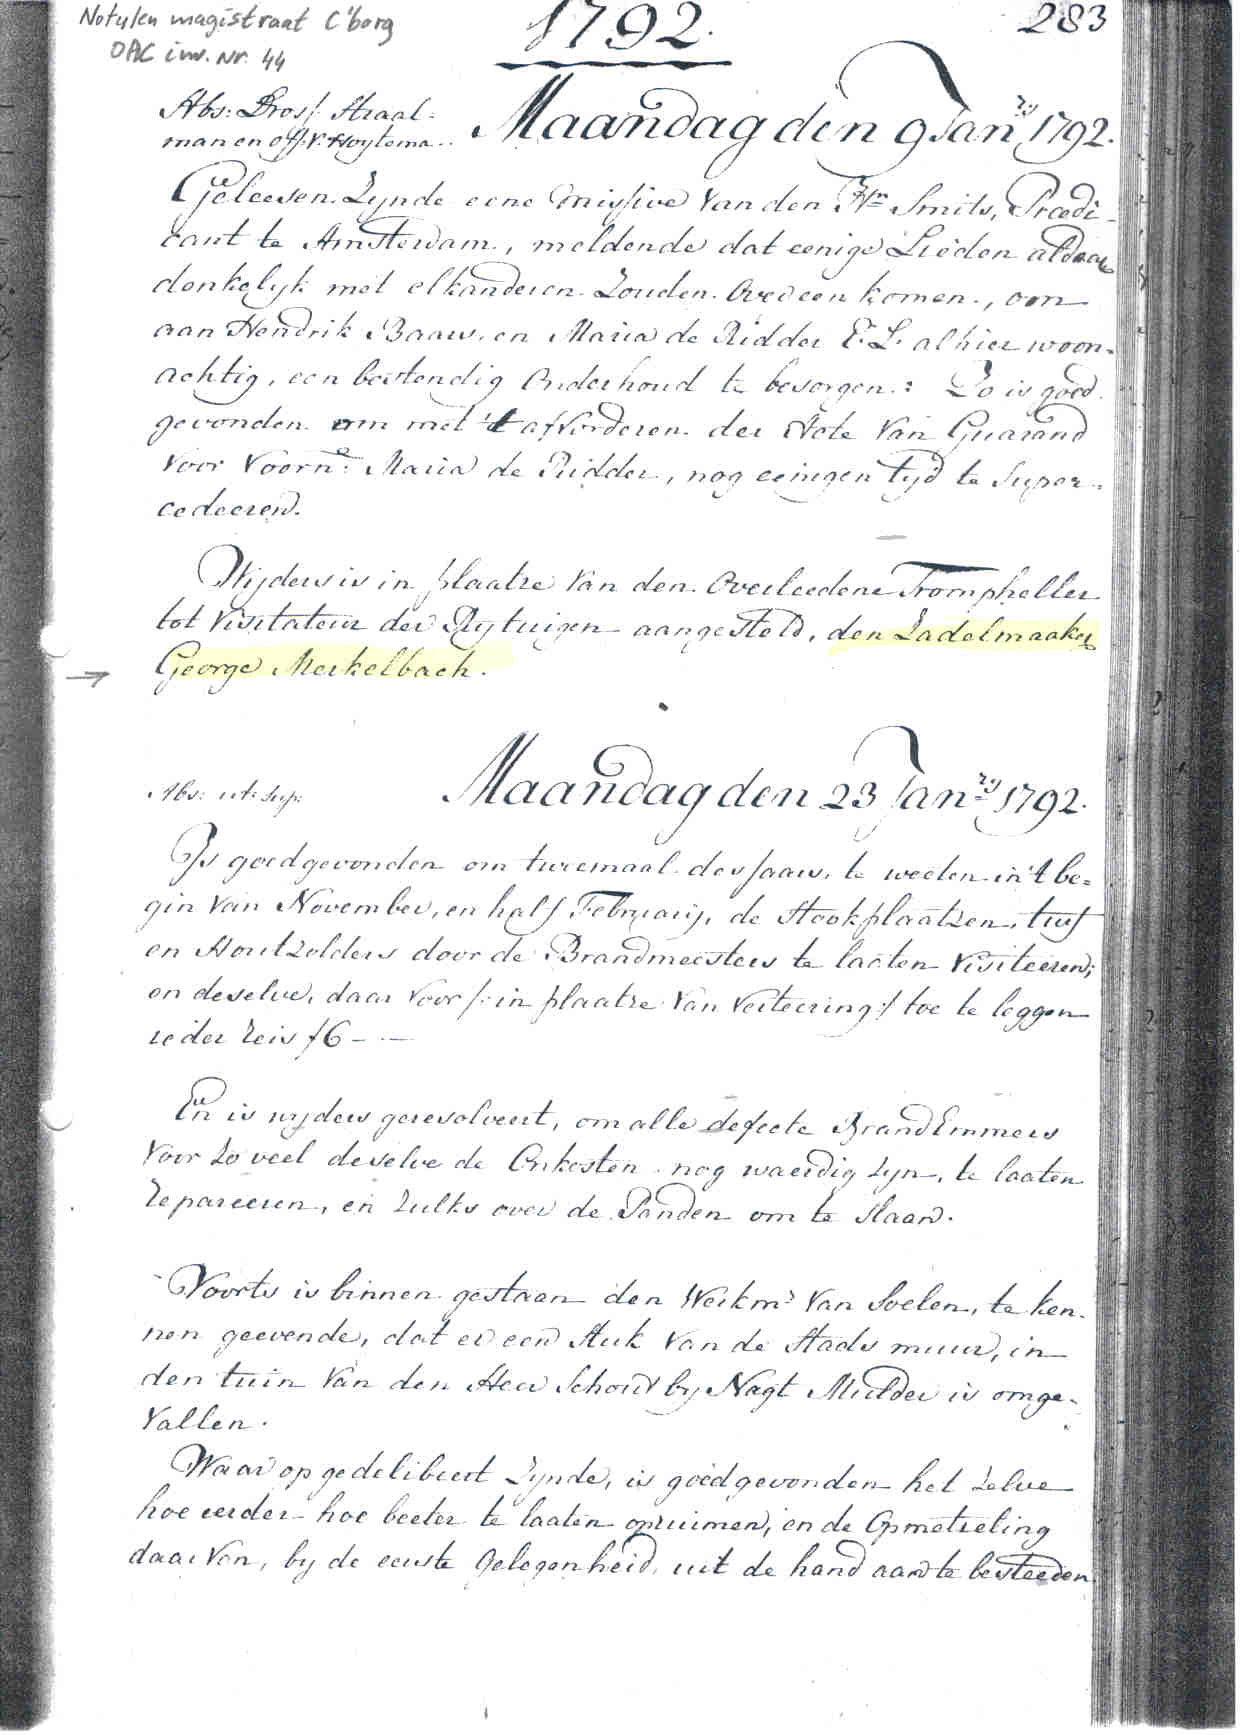 Notulen magistraat C'borg
OAC inv. nr. 44
1792.
283
Abs: Pros/. Straal-
man en off. v. Hoytema..
Maandag den 9 Janry 1792.
Geleesen Zynde eene Missive van den Hrn Smits, Prædi-
cant te Amsterdam, meldende dat eenige Lieden aldaar
denkelyk met elkanderen Zouden Overeenkomen, om
aan Hendrik Baars en Maria de Ridder E.L. alhier woon-
achtig, een bestendig Onderhoud te besorgen: Zo is goed
gevonden om met 't afvorderen der Acte van Guarand
voor Voorne: Maria de Ridder, nog eeingen tyd te Super-
cedeeren.
Wijders is in plaatze van den Overleedene Trompheller
tot Visitateur der Rytuigen aangesteld, den Zadelmaaker
George Merkelbach.
Abs: ut Sup:
Maandag den 23 Janry 1792.
Is goedgevonden om tweemaal des Jaars, te weeten in 't be-
gin van November, en half February, de Stookplaatzen, turf
en Houtzolders door de Brandmeesters te laaten Visiteeren;
en deselve, daar voor /: in plaatze van Verteering :/ toe te leggen
ieder reis f 6 - . -
En is wyders geresolveert, om alle defecte BrandEmmers
voor Zo veel deselve de Onkosten nog waerdig zyn, te laaten
repareeren, en Zulks over de Panden om te Slaan.
Voorts is binnen gestaan den Werkmr Van Soelen, te ken-
nen geevende, dat er een Stuk van de Stads muur, in
den tuin van den Heer Schout by Nagt Mulder is omge-
vallen.
Waar op gedelibreert Zynde, is goedgevonden het Zelve
hoe eerder hoe beeter te laaten opruimen, en de Opmetzeling
daar van, by de eerste Gelegenheid, uit de hand aan te besteeden